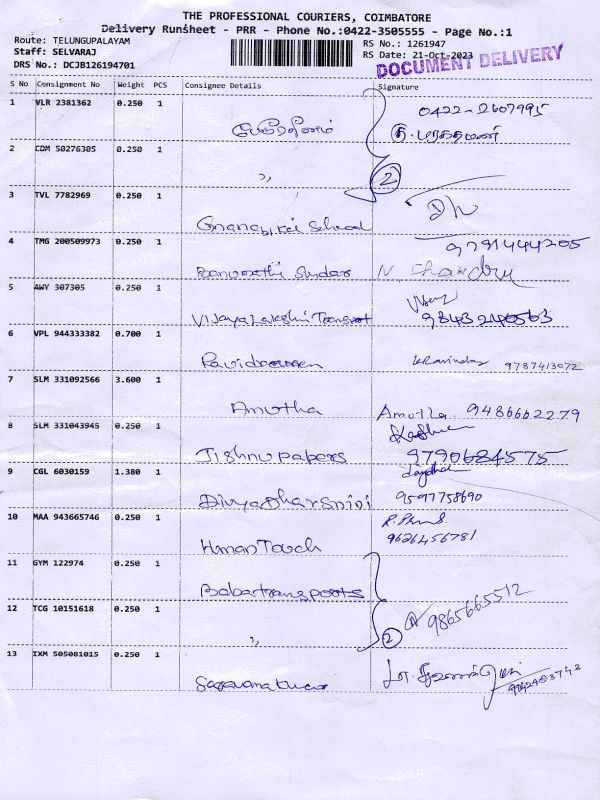 THE PROFESSIONAL COURIERS, COIMBATORE
Delivery Runsheet - PRR - Phone No.:0422-3505555 - Page No.:1
Route: TELUNGUPALAYAM
Staff: SELVARAJ
DRS No.: DCJB126194701
RS No.: 1261947
RS Date: 21-Oct-2023
DOCUMENT DELIVERY
S No Consignment No Weight PCS Consignee Details Signature
1 VLR 2381362 0.250 1 0422-2607995
2 CDM 50276305 0.250 1 ,, 2
3 TVL 7782969 0.250 1 School
4 TMG 200509973 0.250 1 9791444205
N. Chandru
5 AWY 307305 0.250 1 Vijayalakshi Transport
6 VPL 944333382 0.700 1 9787413072
7 SLM 331092566 3.600 1 Amutha Amutha 9486662279
8 SLM 331043945 0.250 1 Jishnu papers 9790684575
9 CGL 6030159 1.380 1 9597758690
10 MAA 943665746 0.250 1 Human Touch 9626456781
11 GYM 122974 0.250 1 Baba transports
12 TCG 10151618 0.250 1 ,, 2 9865665512
13 IXM 505081015 0.250 1 Saravanakumar